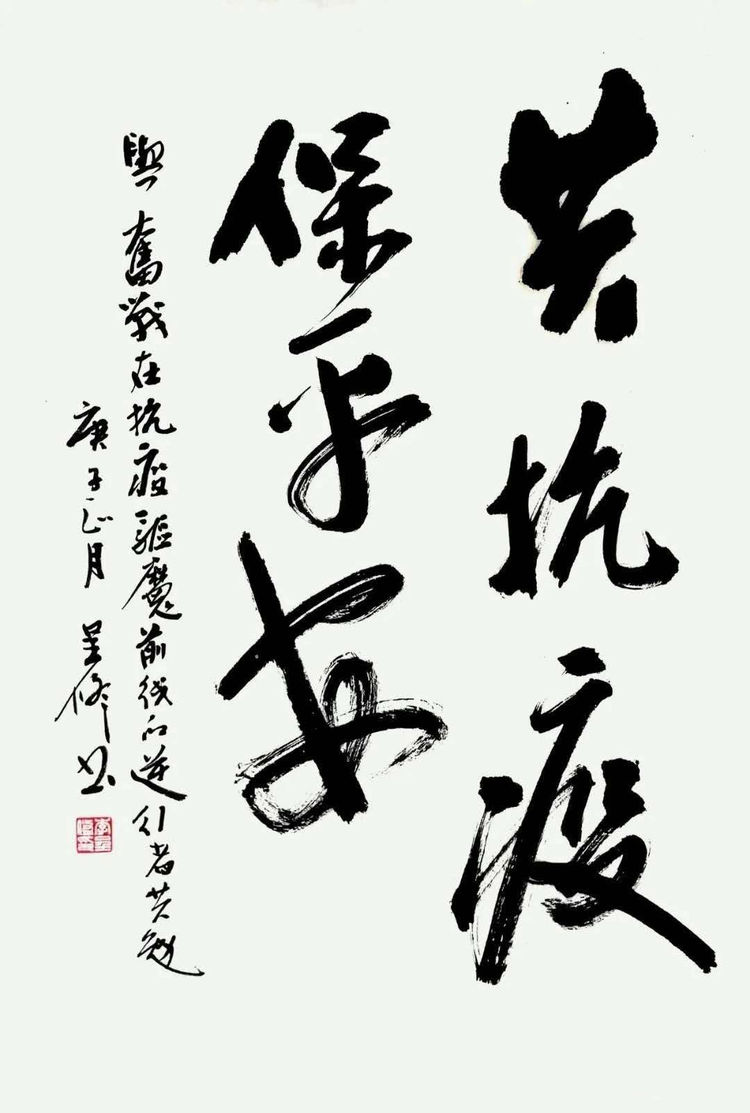 共抗疫
保平安
與奮戰在抗疫驅魔前线的逆行者共勉
庚子正月 呈修书